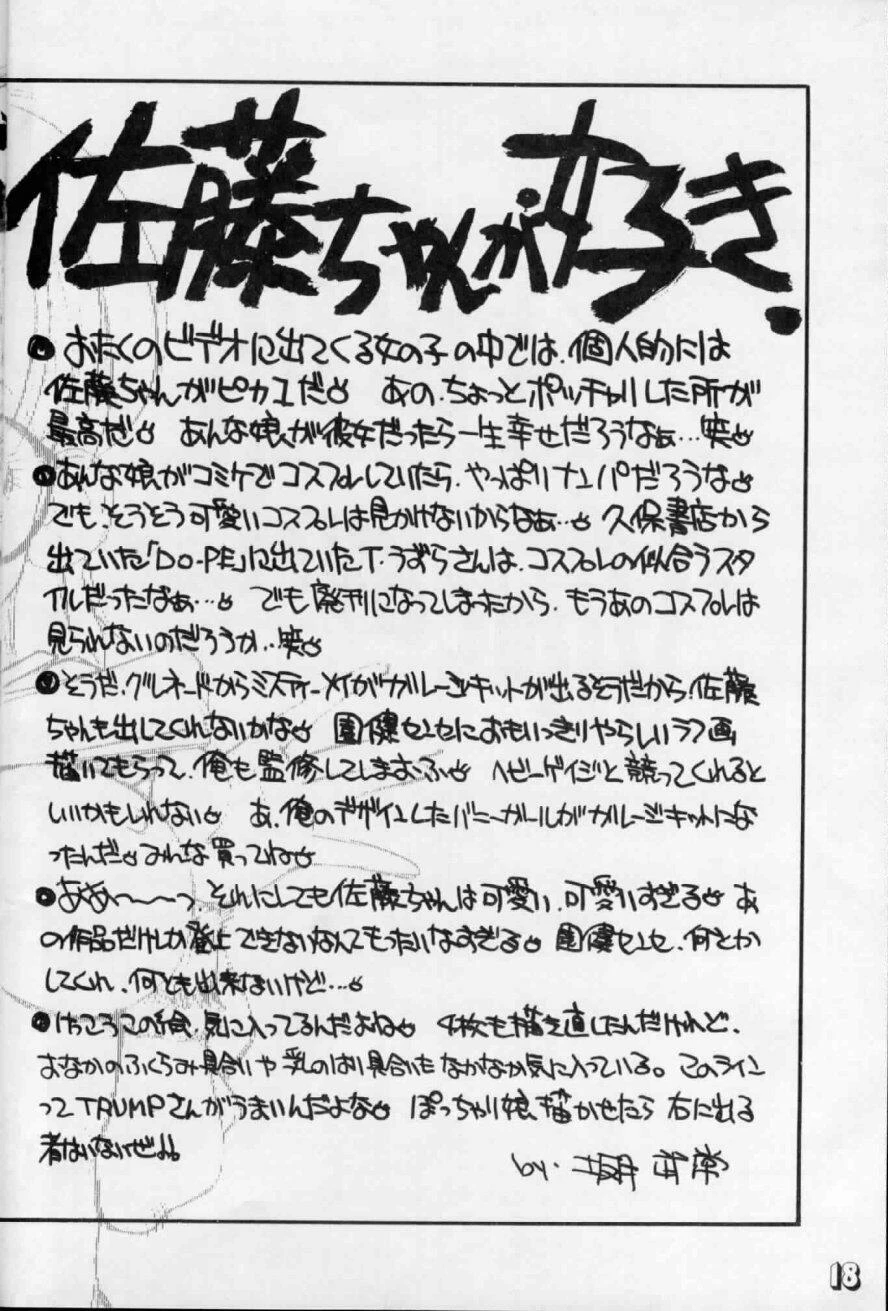 佐藤ちゃんが好き.
●おたくのビデオに出てくる女の子の中では、個人的には
佐藤ちゃんがピカ1だ♡ あの、ちょっとポッチャリした所が
最高だ♡ あんな娘が彼女だったら一生幸せだろうなぁ…笑♡
●あんな娘がコミケでコスプレしていたら、やっぱりナンパだろうな♡
でも、そうそう可愛いコスプレは見かけないからなぁ…♡ 久保書店から
出ていた「DO-PE」に出ていたT・うずらさんは、コスプレの似合うスタ
イルだったなぁ…♡ でも廃刊になってしまったから、もうあのコスプレは
見られないのだろうか…笑♡
●そうだ、グレネードからミスティーメイがガレージキットが出るそうだから、佐藤
ちゃんも出してくれないかな♡ 園健センセにおもいっきりやらしいラフ画
描いてもらって、俺も監修してしまおふ♡ ヘビーゲイジと競ってくれると
いいかもしれない♡ あ、俺のデザインしたバニーガールがガレージキットにな
ったんだ♡みんな買ってね♡
●ああ〜〜〜っ、それにしても佐藤ちゃんは可愛い、可愛いすぎる♡ あ
の作品だけしか登上できないなんてもったいなすぎる♡ 園健センセ、何とか
してくれ、何とも出来ないけど…♡
●けっこうこの絵、気に入ってるんだよね♡ 4枚も描き直したんだけれど、
おなかのふくらみ具合いや乳のはり具合いもなかなか気に入っている。このライン
ってTRUMPさんがうまいんだよな♡ ぽっちゃり娘、描かせたら右に出る
者はいないぜ!!。
by.
18